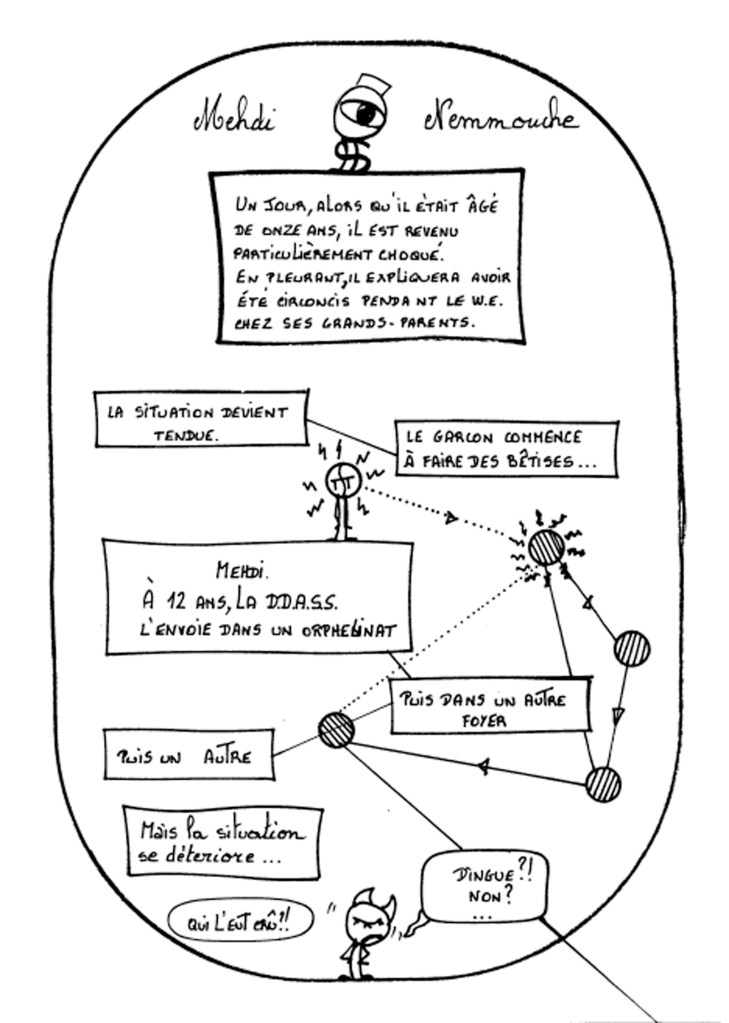 Mehdi Nemmouche
UN JOUR, ALORS QU'IL ÈTAIT ÂGÉ
DE ONZE ANS, IL EST REVENU
PARTICULIÈREMENT CHOQUÉ.
EN PLEURANT, IL EXPLIQUERA AVOIR
ÉTÉ CIRCONCIS PENDANT LE W.E.
CHEZ SES GRANDS-PARENTS.
LA SITUATION DEVIENT
TENDUE.
LE GARCON COMMENCE
À FAIRE DES BÊTISES...
MEHDI.
À 12 ANS, LA D.D.A.S.S.
L'ENVOIE DANS UN ORPHELINAT
PUIS DANS UN AUTRE
FOYER
PUIS UN AUTRE
Mais la situation
se déteriore ...
DINGUE?!
NON?
...
QUI L'EUT CRÛ?!